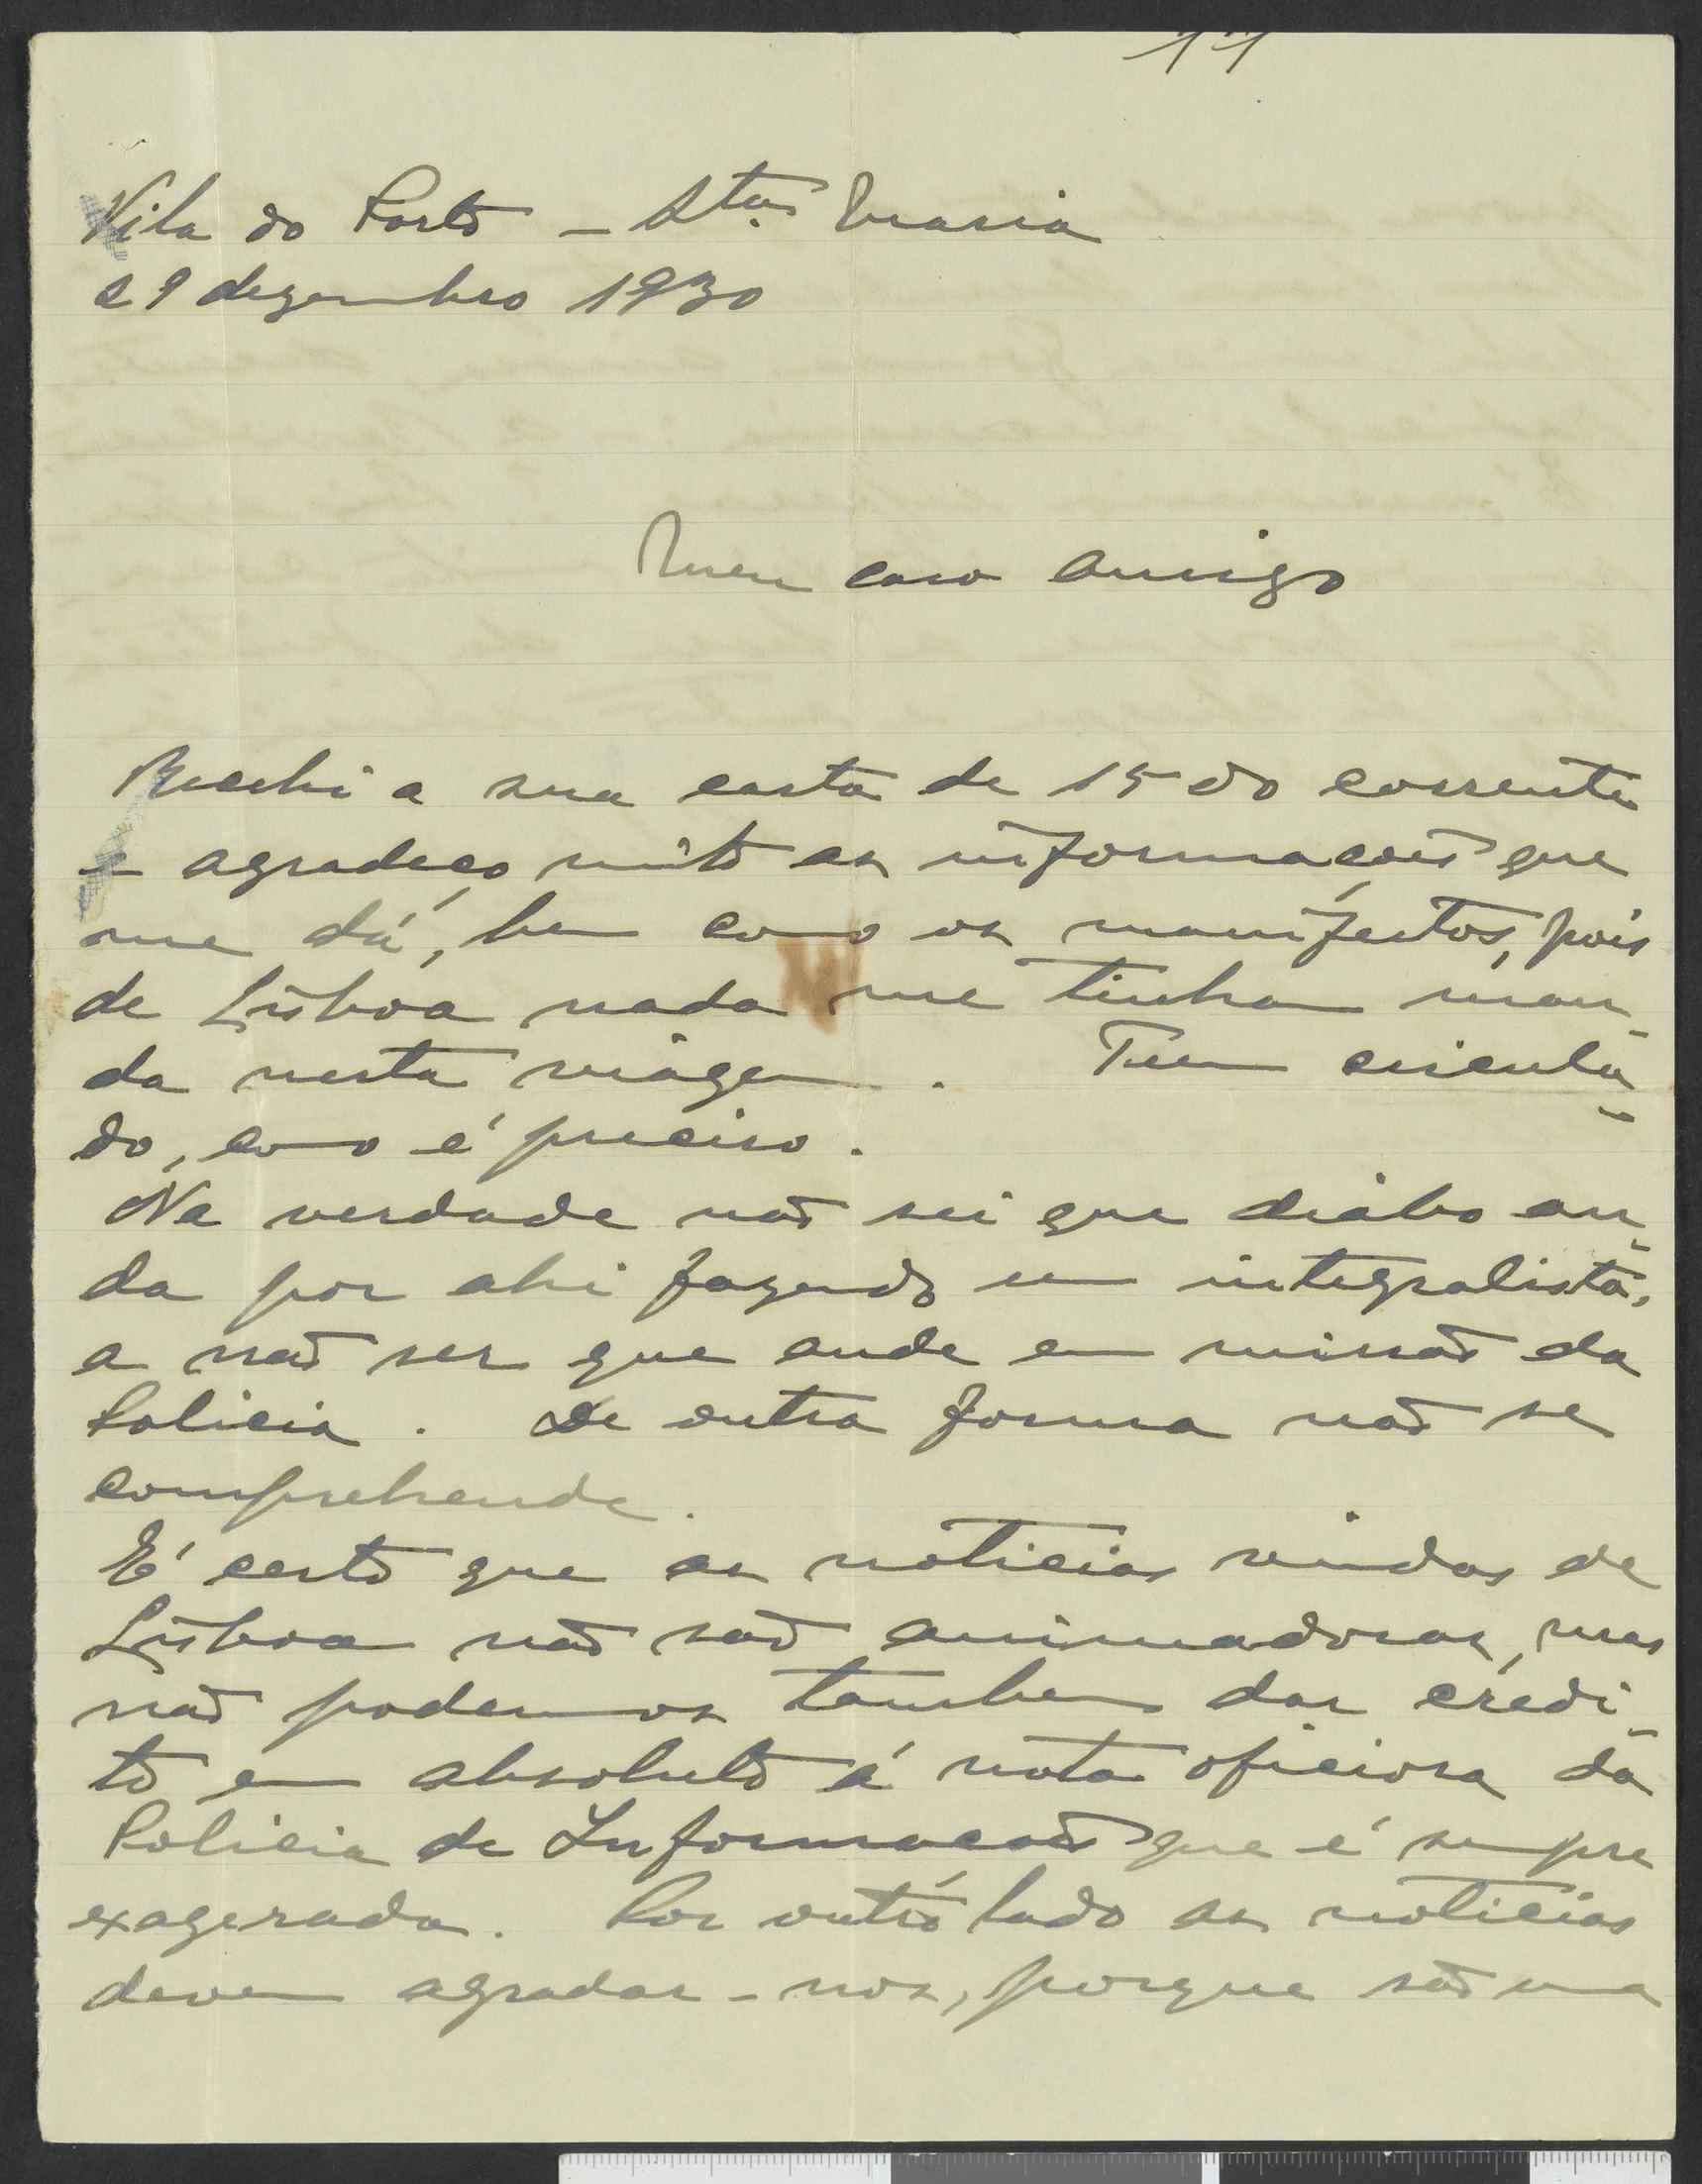 Vila do Porto - Sta. Maria
29 dezembro 1930
Meu caro amigo
Recebi a sua carta de 15 do corrente
e agradeço muito as informações que
me dá, bem como os manifestos, pois
de Lisboa nada me tinham man-
da nesta viagem. Tem circula-
do, como é preciso.
Na verdade não sei que diabo an-
da por ahi fazendo um integralista,
a não ser que ande em missão da
Policia. De outra forma não se
comprehende.
É certo que as noticias vindas de
Lisboa não são animadoras, mas
não podemos tambem dar crédi-
to em absoluto á nota oficiosa da
Policia de Informação que é sempre
exagerada. Por outro lado as noticias
devem agradar-nos, porque são uma